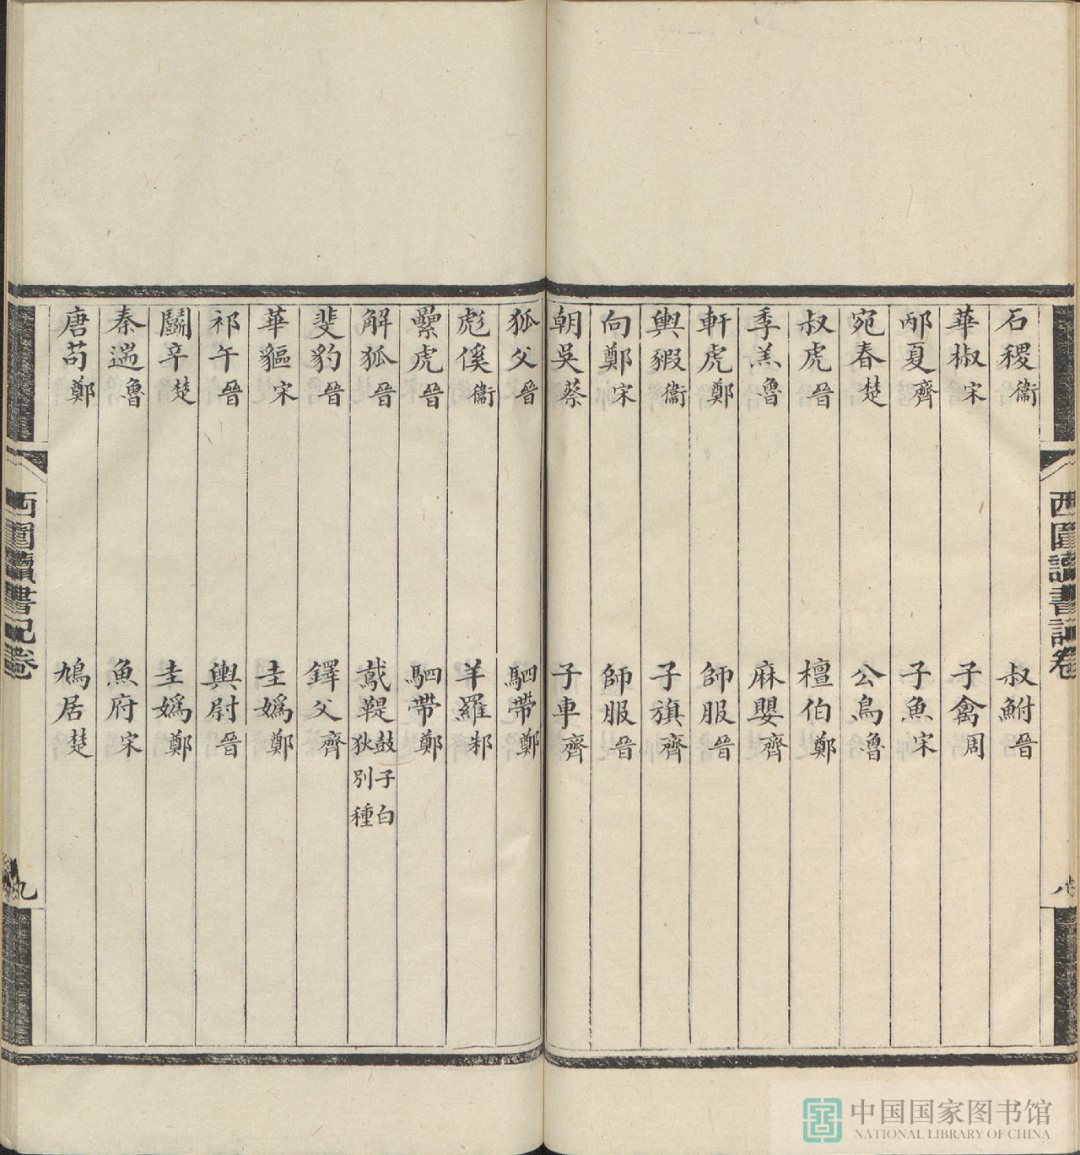 石稷衞　叔鮒晉
華椒宋　子禽周
邴夏齊　子魚宋
宛春楚　公鳥魯
叔虎晉　檀伯鄭
季羔魯　麻嬰齊
軒虎鄭　師服晉
輿猳衞　子旗齊
向鄭宋　師服晉
朝吳蔡　子車齊
狐父晉　駟帶鄭
彪傒衞　羊羅邾
纍虎晉　駟帶鄭
解狐晉　鳶鞮鼓子白狄別種
斐豹晉　鐸父齊
華貙宋　圭媯鄭
祁午晉　輿尉晉
鬭辛楚　圭媯鄭
秦遄魯　魚府宋
唐苟鄭　鳩居楚
西圃讀書記卷
八
西圃讀書記卷
九
中国国家图书馆
NATIONAL LIBRARY OF CHINA